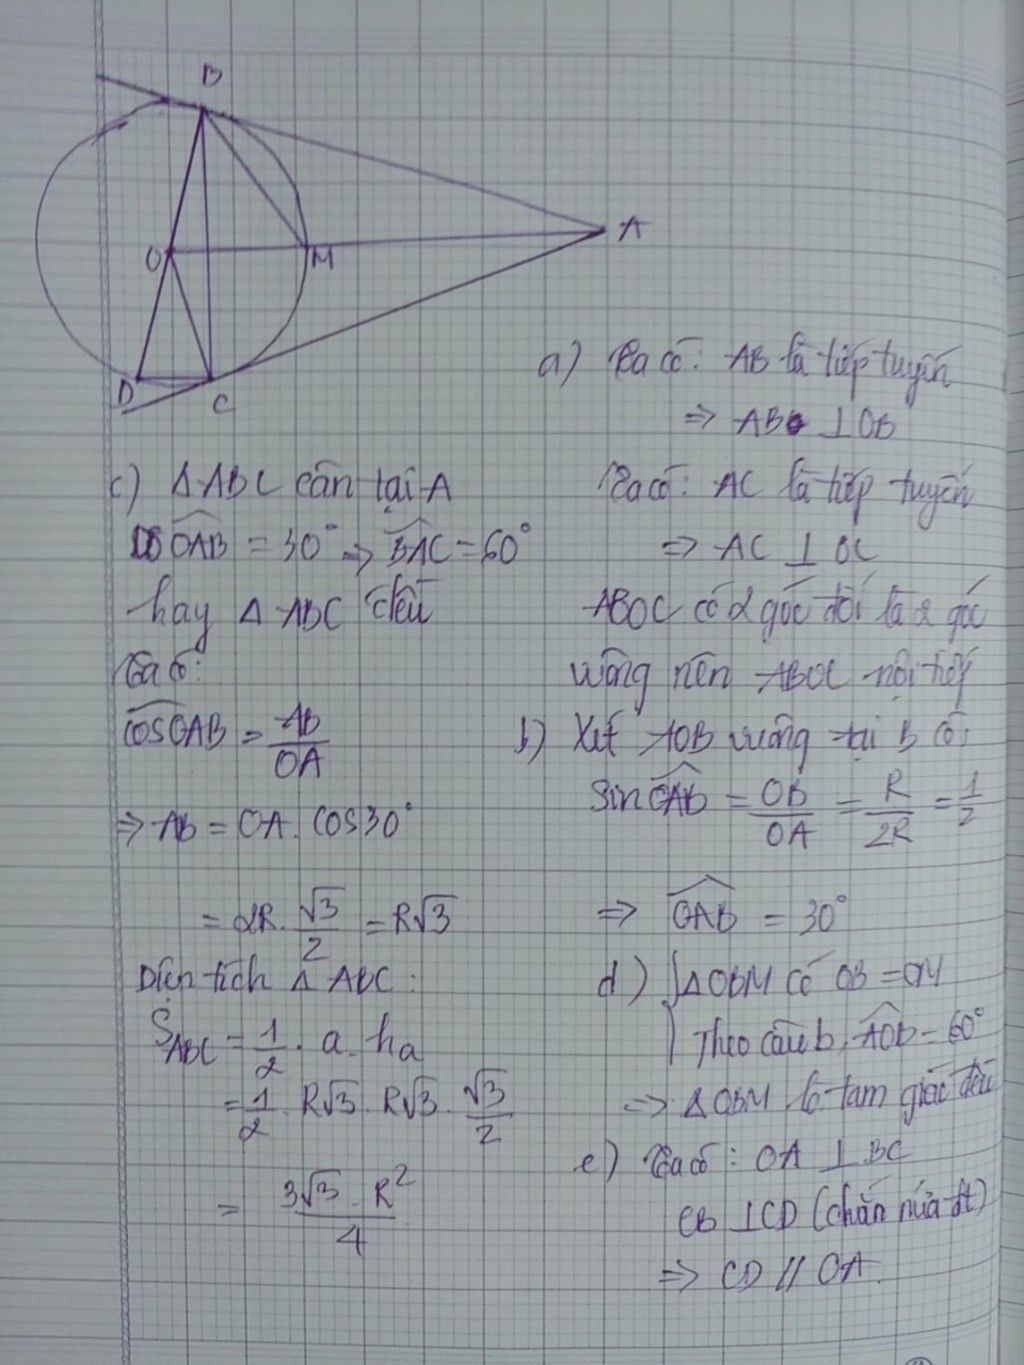 B
A
O
M
D
C
a) Ta có: AB là tiếp tuyến
=> AB ⊥ OB
Ta có: AC là tiếp tuyến
=> AC ⊥ OC
ABOC có 2 góc đối là 2 góc
vuông nên ABOC nội tiếp
b) Xét AOB vuông tại B có:
sin OAB = OB/OA = R/2R = 1/2
=> OAB = 30°
c) Δ ABC cân tại A
Do OAB = 30° => BAC = 60°
hay Δ ABC đều
Ta có:
cos OAB = AB/OA
=> AB = OA. cos30°
= 2R. √3/2 = R√3
Diện tích Δ ABC:
S_ABC = 1/2 . a . ha
= 1/2 . R√3 . R√3 . √3/2
= 3√3 . R²/4
d) Δ OBM có OB = OM
Theo câu b, AOB = 60°
=> Δ OBM là tam giác đều
e) Ta có: OA ⊥ BC
CB ⊥ CD (chắn nửa đt)
=> CD // OA.